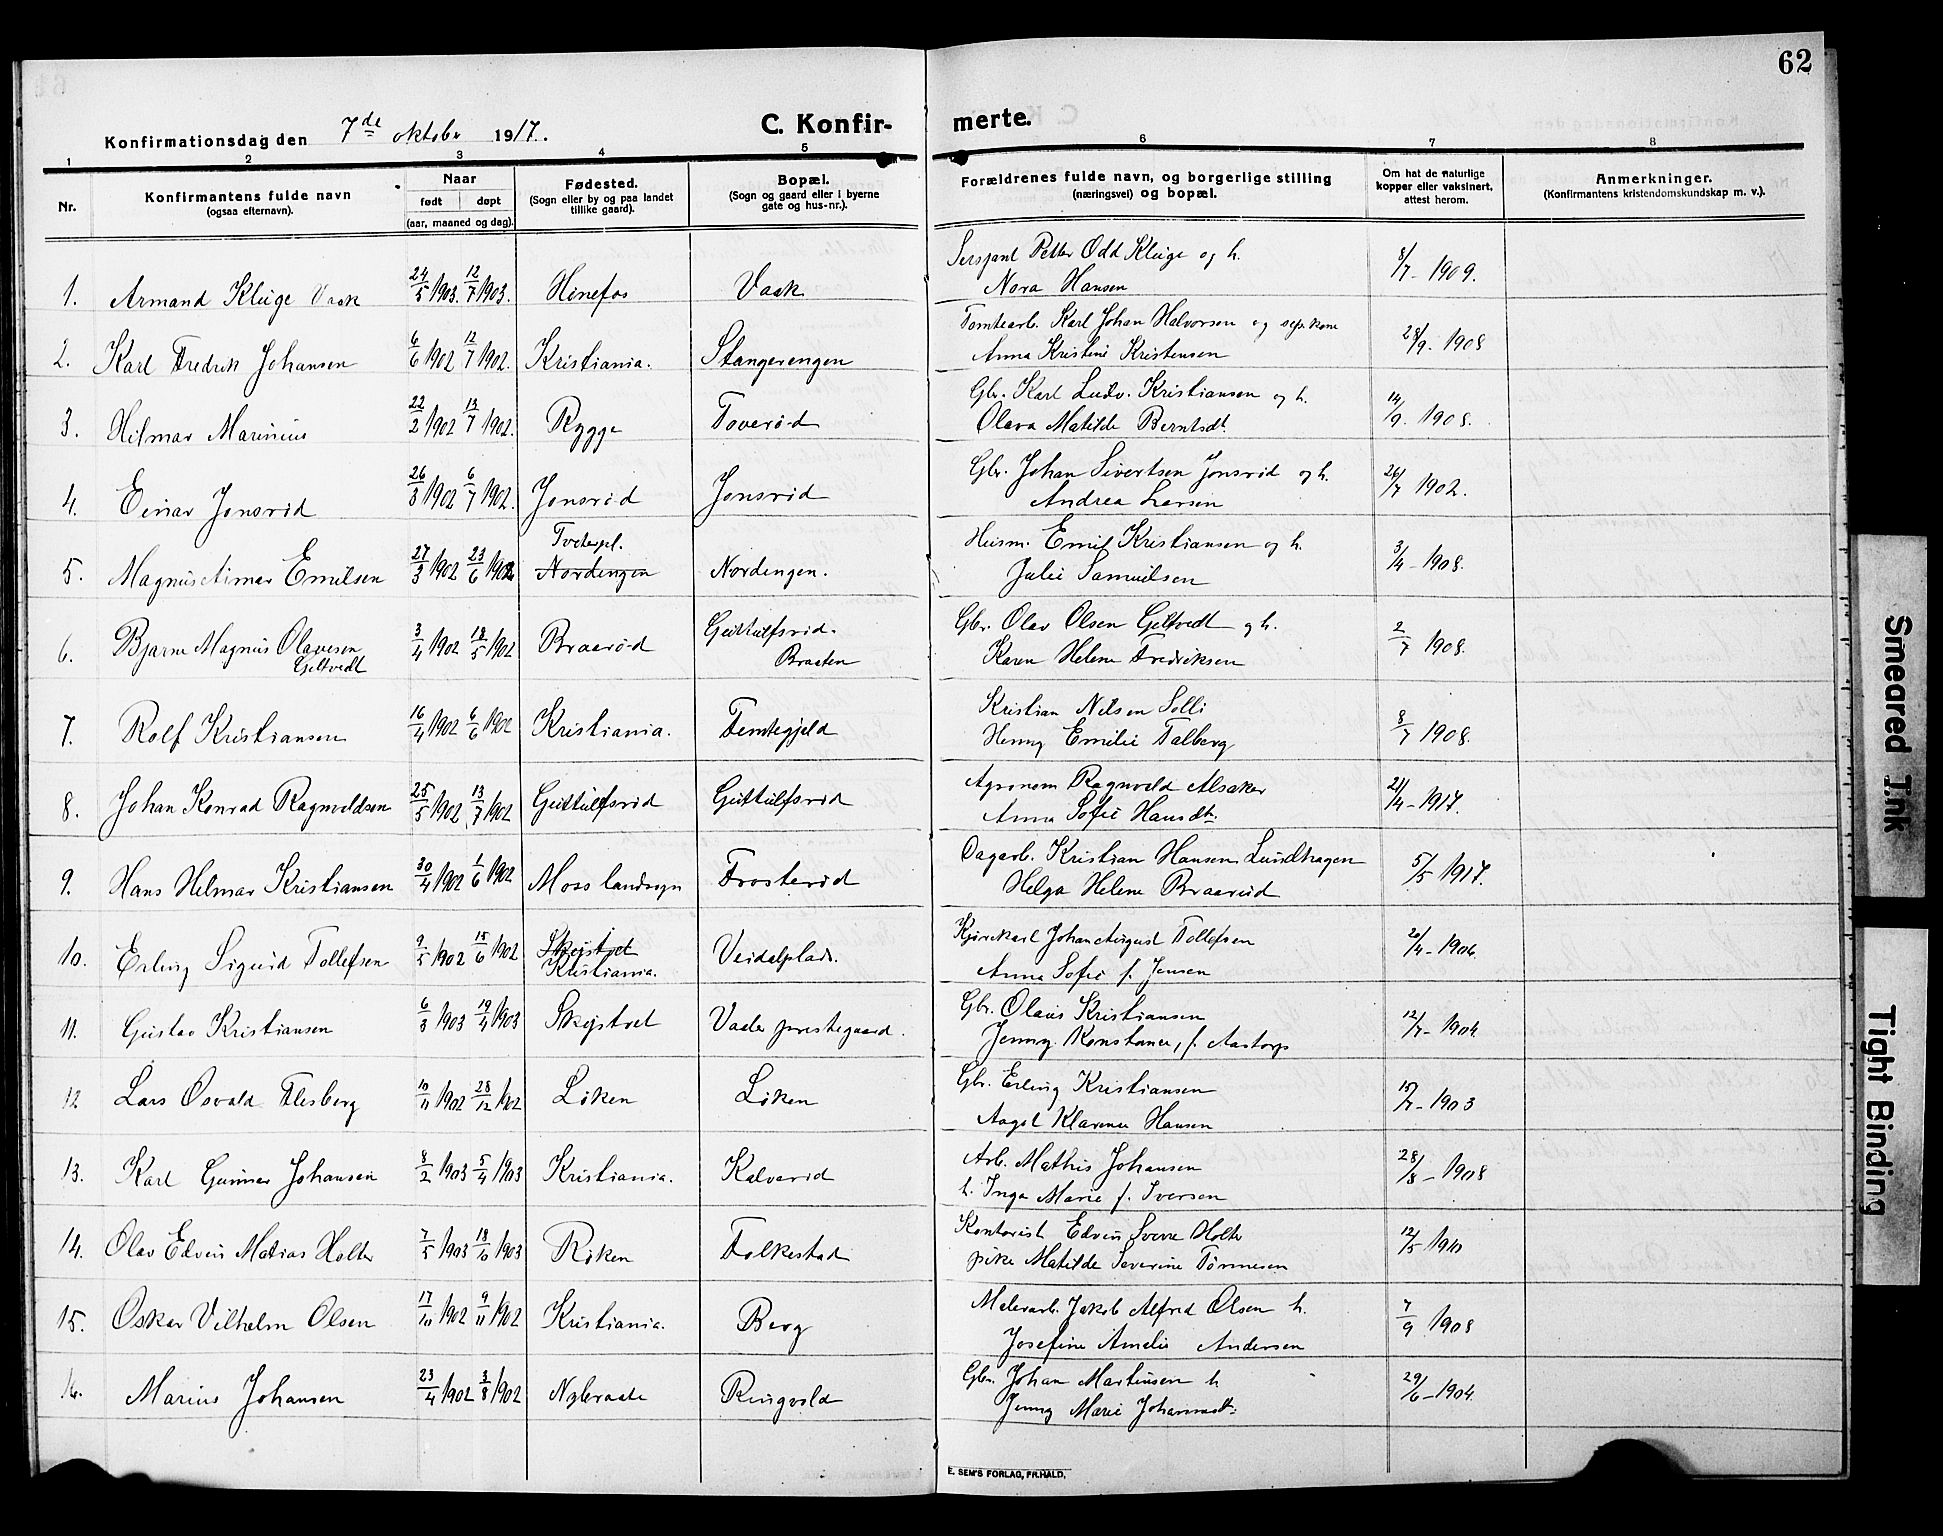 62
Konfirmationsdag den 7de oktober 1917. C. Konfirmerte.
1 2 3 4 5 6 7 8
Nr.
Konfirmantens fulde navn
(ogsaa efternavn).
Naar
født døpt
(aar, maaned og dag).
Fødested.
(Sogn eller by og paa landet
tillike gaard).
Bopæl.
(Sogn og gaard eller i byerne
gate og hus-nr.).
Forældrenes fulde navn, og borgerlige stilling
(næringsvei) og bopæl.
Om hat de naturlige
kopper eller vaksinert,
attest herom.
Anmerkninger.
(Konfirmantens kristendomskundskap m. v.).
1. Armand Kluge Vaak 24/5 1903. 12/7 1903. Hønefos Vaak Sersjant Petter Odd Kluge og h. 8/7 - 1909.
Nora Hansen
2. Karl Fredrik Johansen 6/6 1902 12/7 1902. Kristiania. Stangerengen Tomtearb. Karl Johan Halvorsen og 28/9. 1908
Anna Kristine Kristensen
3. Hilmar Marinius 22/2 1902 13/7 1902. Rygge Toverød Gbr. Karl Ludv. Kristiansen og h. 14/9. 1908.
Olava Matilde Berntsdt.
4. Einar Jonsrød 26/3 1902 6/7 1902. Jonsrød Jonsrød Gbr. Johan Sivertsen Jonsrød og h. 26/7 1902.
Andrea Larsen
Tveterpl.
5. Magnus Aimar Emilsen 27/3 1902 23/6 1902 Nordengen Nordengen. Husm. Emil Kristiansen og h. 3/4 - 1908.
Julie Samuelsen
6. Bjarne Magnus Olavesen 3/4 1902 18/5 1902 Braarød Guttulfsrød. Gbr. Olav Olsen Geltvedt og h. 2/7 1908.
Geltvedt Braaten Karen Helene Fredriksen
7. Rolf Kristiansen 16/4 1902 6/6 1902 Kristiania. Femtegjeld Kristian Nilsen Solli 8/7 1908.
Henny Emilie Talberg
8. Johan Konrad Ragnvaldsen 25/5 1902 13/7 1902 Guttulfsrød Guttulfsrød Agronom Ragnvald Alsaker 21/4 - 1917.
Anna Sofie Hansdt.
9. Hans Helmar Kristiansen 30/4 1902 1/6 1902 Moss landsogn Frosterød Dagarb. Kristian Hansen Lundhagen 5/5 1917.
Helga Helene Braarud
10. Erling Sigurd Tollefsen 9/5 1902 15/6 1902 Skøjtvet Kristiania. Veidalplads. Kjørekarl Johan August Tollefsen 20/4 - 1906
Anna Sofie f. Jensen
11. Gustav Kristiansen 6/3 1903 19/4 1903 Skøjtvet Vaaler prestegaard. Gbr. Olaus Kristiansen 12/7 - 1904
Jenny Konstance, f. Aastorp
12 Lars Osvald Flesberg 10/11 1902 28/12 1902 Løken Løken Gbr. Erling Kristiansen 15/7 - 1903
Aagot Klarence Hansen
13. Karl Gunnar Johansen 8/2 1903 5/4 1903 Kristiania. Kalverød Arb. Mathis Johansen 28/8 - 1908
h. Inga Marie f. Iversen
14. Olav Edvin Matias Holter 7/5 1903 18/10 1903 Røken Folkestad Kontorist Edvin Sverre Holter 12/5 1910
pike Matilde Severine Tønnesen
15. Oskar Vilhelm Olsen 17/10 1902 9/11 1902 Kristiania. Berg Malerarb. Jakob Alfred Olsen h. 7/9 1908
Josefine Amelie Andersen
16. Marius Johansen 23/4 1902 3/8 1902 Nybraate Ringvold Gbr. Johan Martinsen h 29/6 - 1904
Jenny Marie Johannesdt.
E. SEM'S FORLAG, FR.HALD.
Smeared Ink
Tight Binding